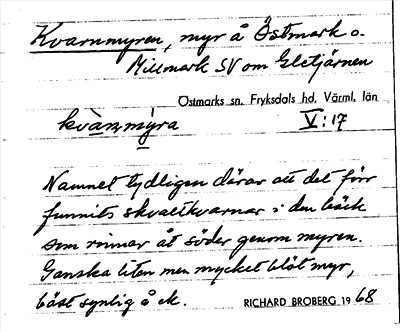 Kvarnmyren, myr å Östmark o.
Millmark SV om Gletjärnen
Östmarks sn. Fryksdals hd. Värml. län
kvàrnmýra V:17
Namnet tydligen därav att det förr
funnits skvaltkvarnar i den bäck
som rinner åt söder genom myren.
Ganska liten men mycket blöt myr,
bäst synlig å ek.
RICHARD BROBERG 1968